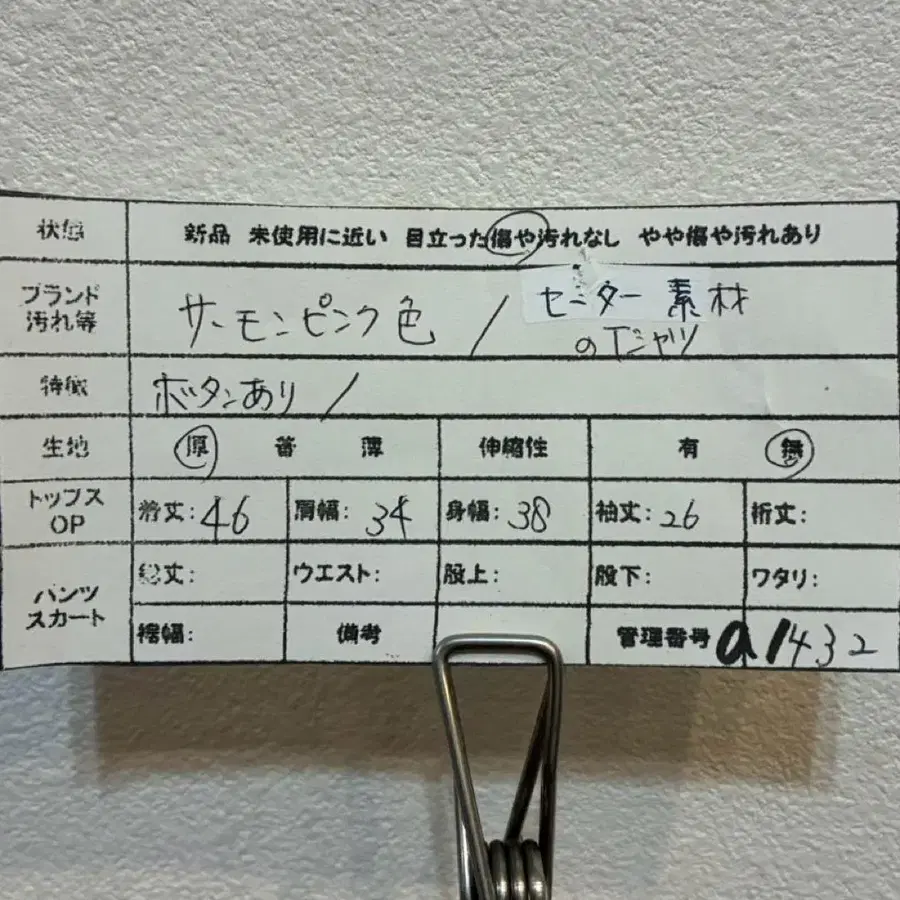 状態 新品 未使用に近い 目立った傷や汚れなし やや傷や汚れあり
ブランド
汚れ等
サーモンピンク色 / セーター素材
のTシャツ
特徴 ボタンあり /
生地 厚 普 薄 伸縮性 有 無
トップス
OP
着丈:46 肩幅:34 身幅:38 袖丈:26 裄丈:
パンツ
スカート
総丈: ウエスト: 股上: 股下: ワタリ:
裾幅: 備考 管理番号 a1432